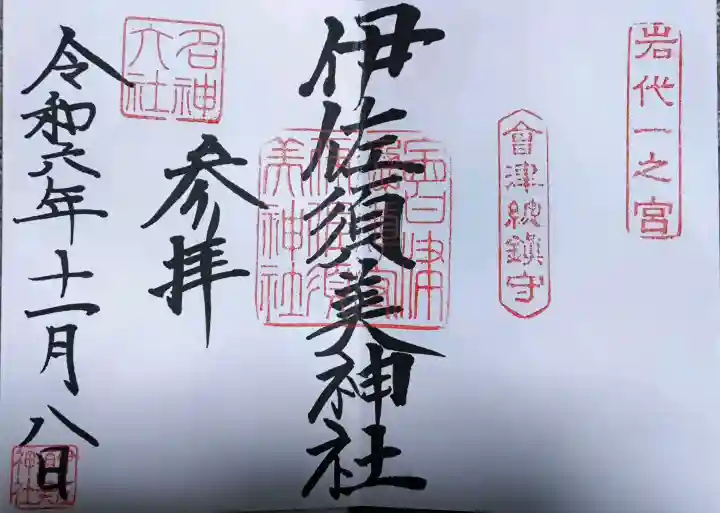 岩代一之宮
會津総鎮守
伊佐須美神社
参拝
名神
大社
令和六年十一月八日